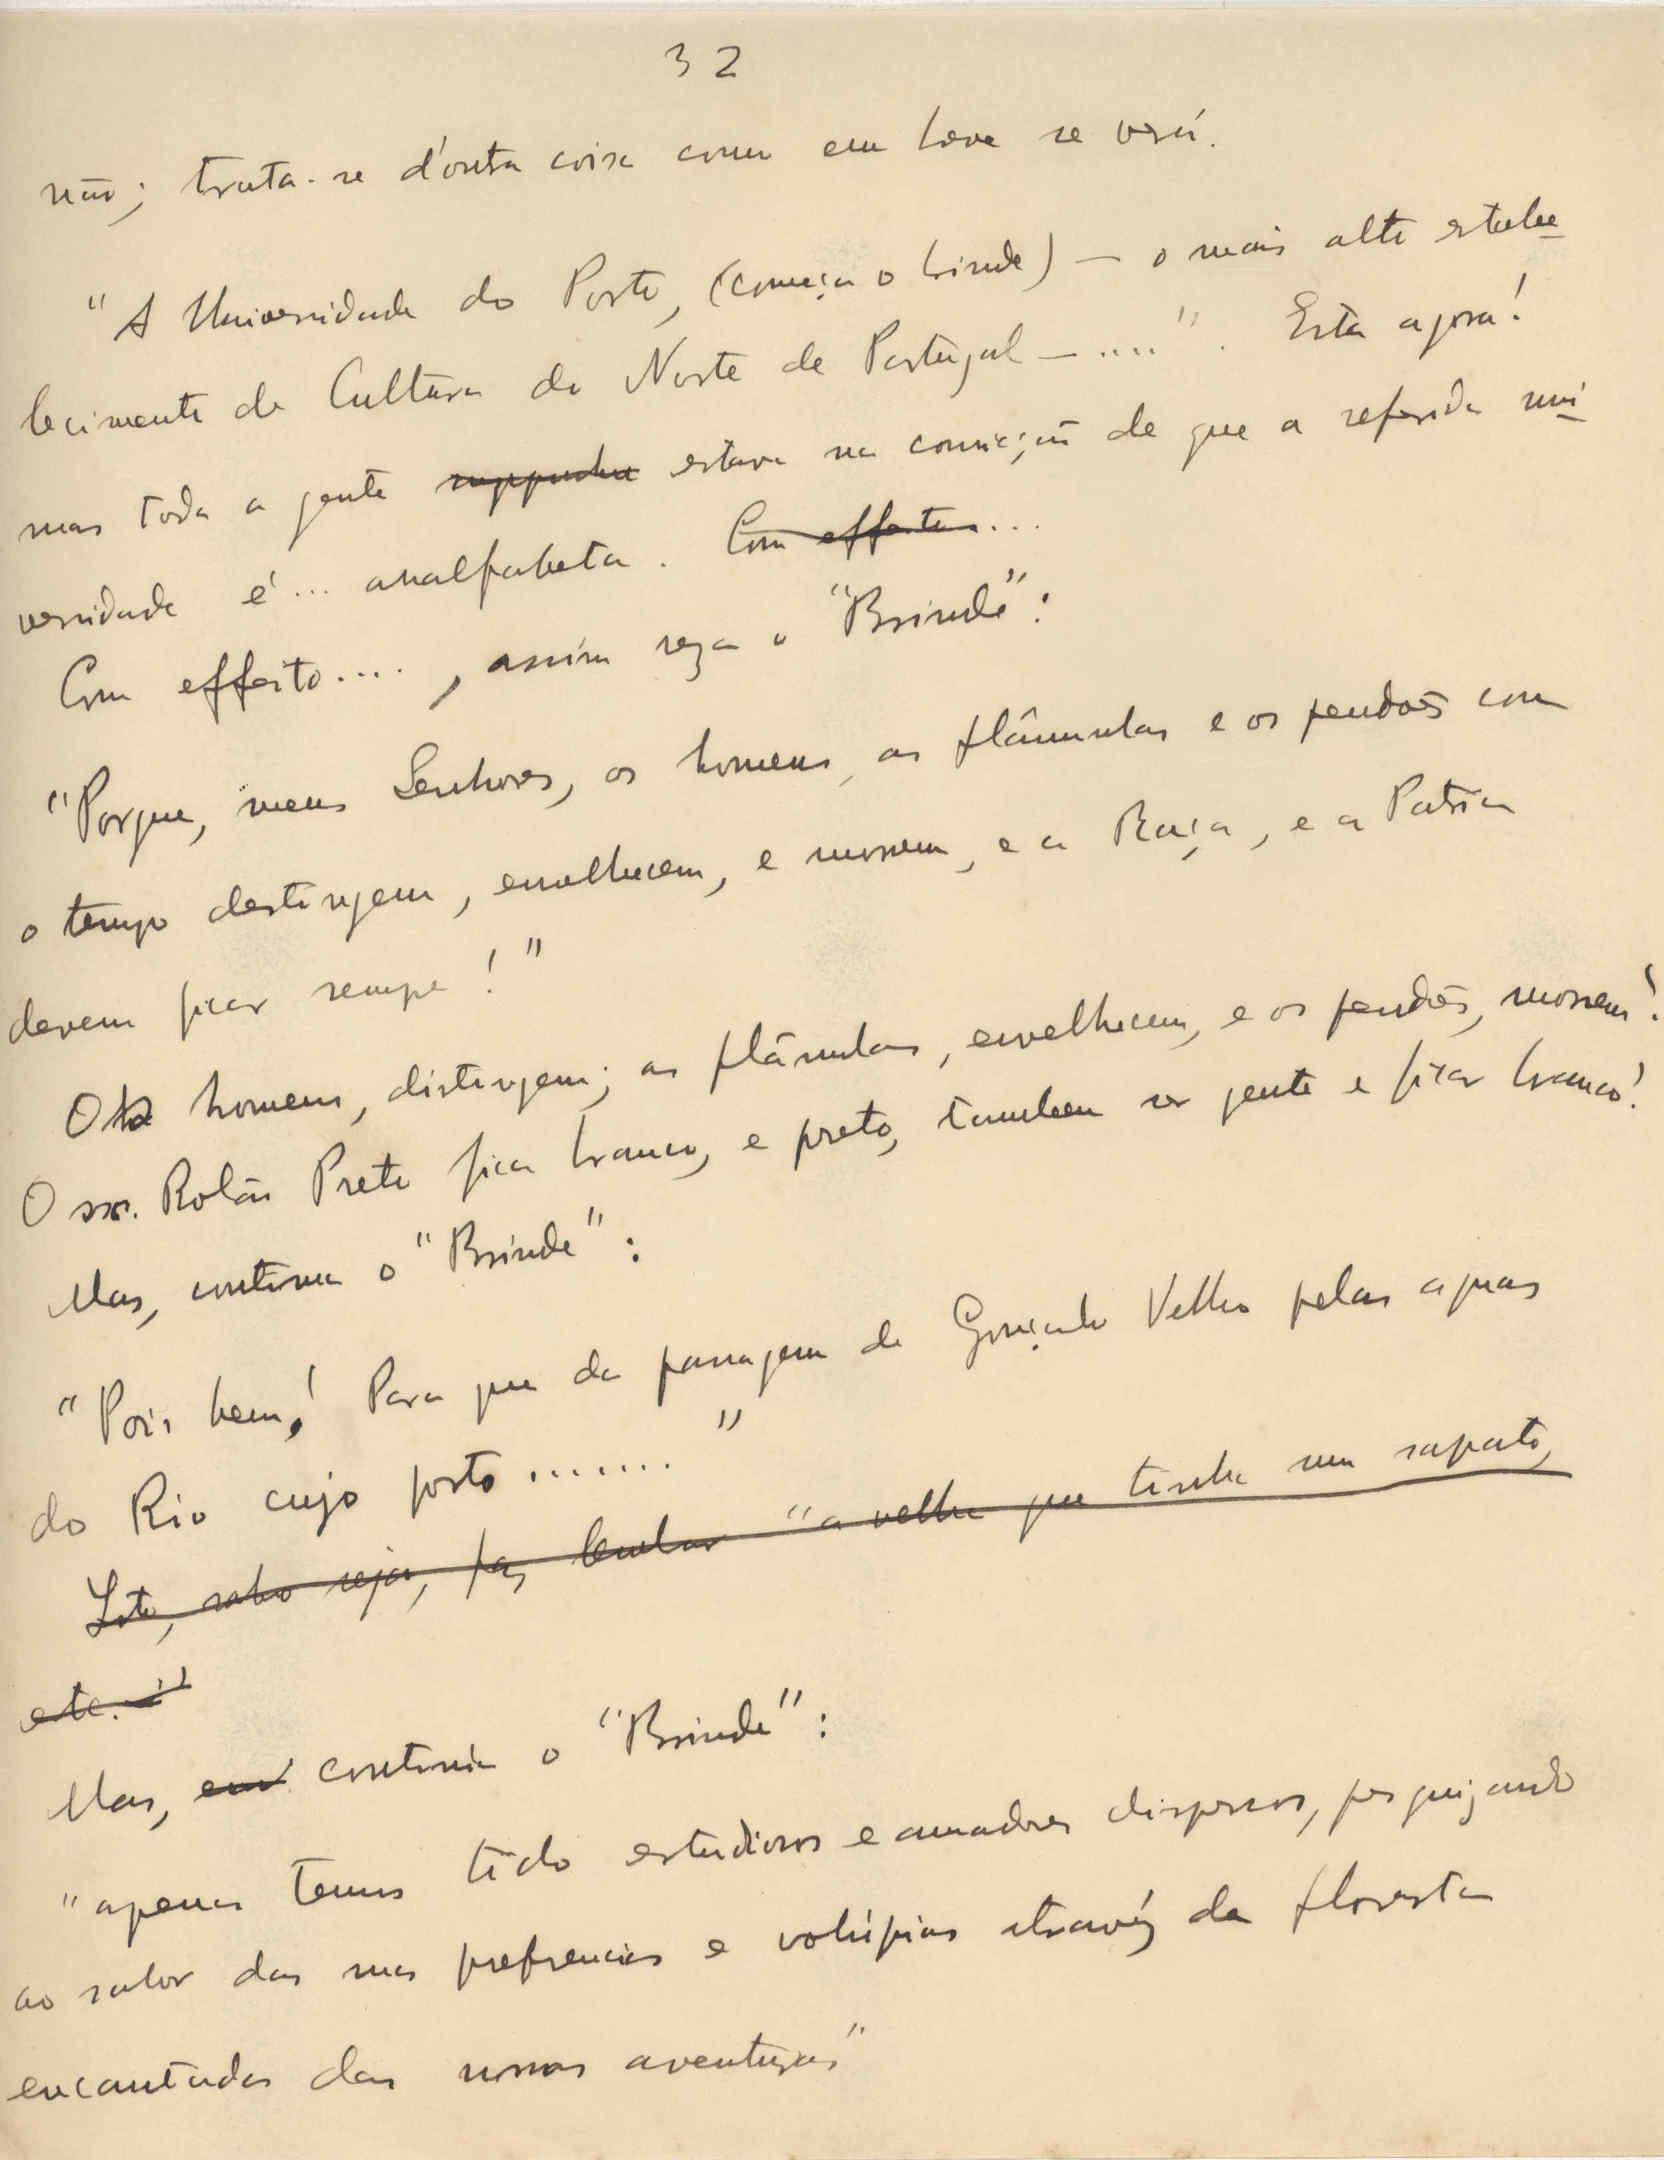 32
não; trata-se d'outra coisa como em breve se verá.
"A Universidade do Porto, (começa o brinde) — o mais alto estabe-
lecimento de Cultura do Norte de Portugal — ....". Esta agora!
mas toda a gente suppunha estava na convicção de que a referida uni-
versidade é... analfabeta. Com effeito...
Com effeito...., assim reza o "Brinde":
"Porque, meus Senhores, os homens, as flâmulas e os pendões com
o tempo destingem, envelhecem, e morrem, e a Raça, e a Patria
devem ficar sempre!"
Os homens, distingem; as flâmulas, envelhecem, e os pendões, morrem!
O snr. Rolão Preto fica branco, e preto, tambem ser gente e ficar branco!
Mas, continua o "Brinde":
"Pois bem! Para que da passagem de Gonçalo Velho pelas aguas
do Rio cujo porto ......."
Isto, salvo seja, faz lembrar "a velha que tinha um sapato,
etc."
Mas, con continúa o "Brinde":
"apenas temos tido estudiosos e amadores dispersos, pesquizando
ao sabor das suas prefrencias e volúpias através da floresta
encantada das nossas aventuras"